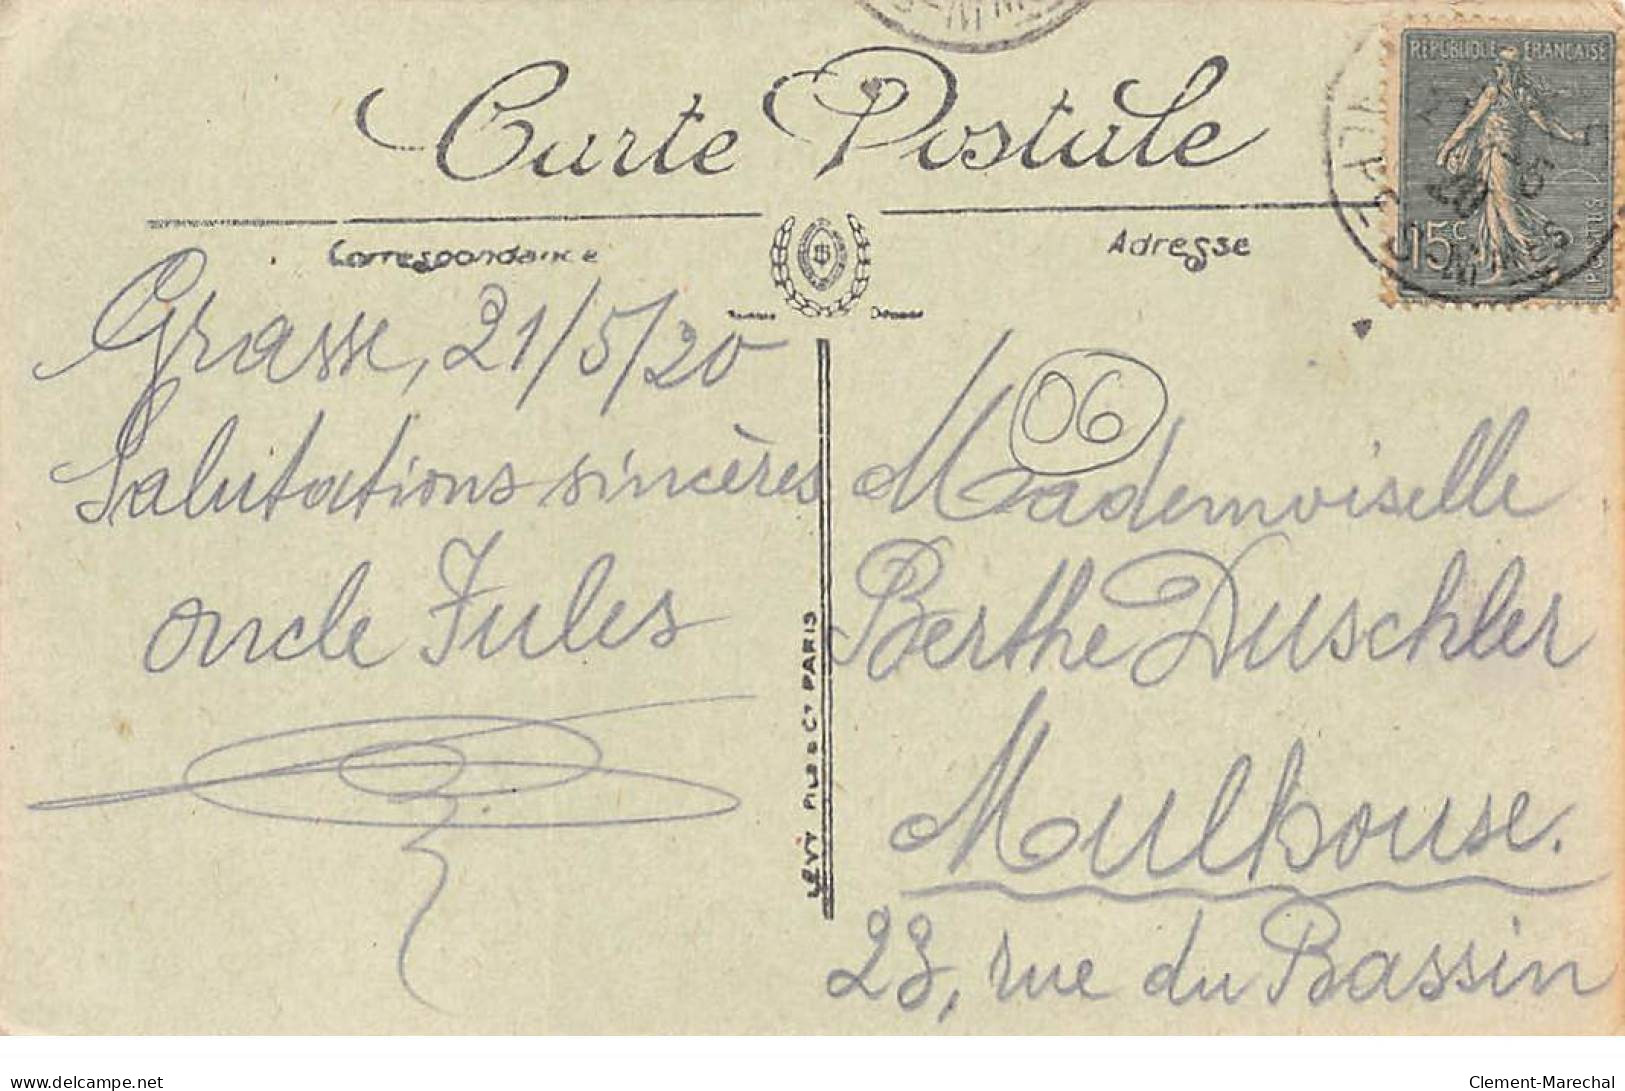 Carte Postale
Correspondance
Adresse
RÉPUBLIQUE FRANÇAISE
15c
POSTES
Grasse, 21/5/20
Salutations sincères
oncle Jules
LÉVY FILS & Cie PARIS
06
Mademoiselle
Berthe Duschler
Mulhouse.
28, rue du Bassin
delcampe.net
Clement-Marechal